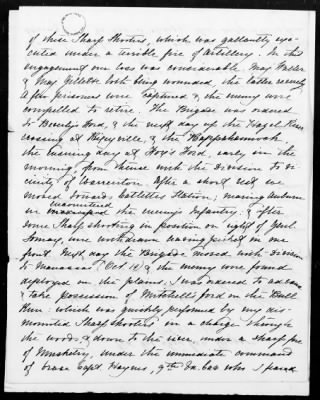 of their Sharp Shooters, which was gallantly exe-
cuted under a terrible fire of Artillery. In this
engagement our loss was considerable. Maj Waller
& Maj Gillette both being wounded, the latter severely
A few prisoners were captured & the enemy were
compelled to retire. The Brigade was ordered
to Beverly's Ford, & the next day up the Hazel River
crossing at Rixeyville, & the Rappahannock
the Ensuing day at Fox's Ford, early in the
morning, from thence with the Division to vi-
cinity of Warrenton. After a short rest we
moved towards Catlett's Station; nearing Auburn
we encountered the enemy's Infantry; & after
some Sharp shooting in position on right of Genl
Lomax, were withdrawn leaving picket in our
front. Next day the Brigade moved with Division
to Manassas, Oct 14, & the enemy were found
deployed on the plains; I was ordered to advance
& take possession of Mitchell's ford on the Bull
Run: which was quickly performed by my dis-
mounted Sharp shooters in a charge through
the woods, & down to the river, under a sharp fire
of Musketry, under the immediate command
of brave Capt Haynes, 9th Va. Cav who I placed